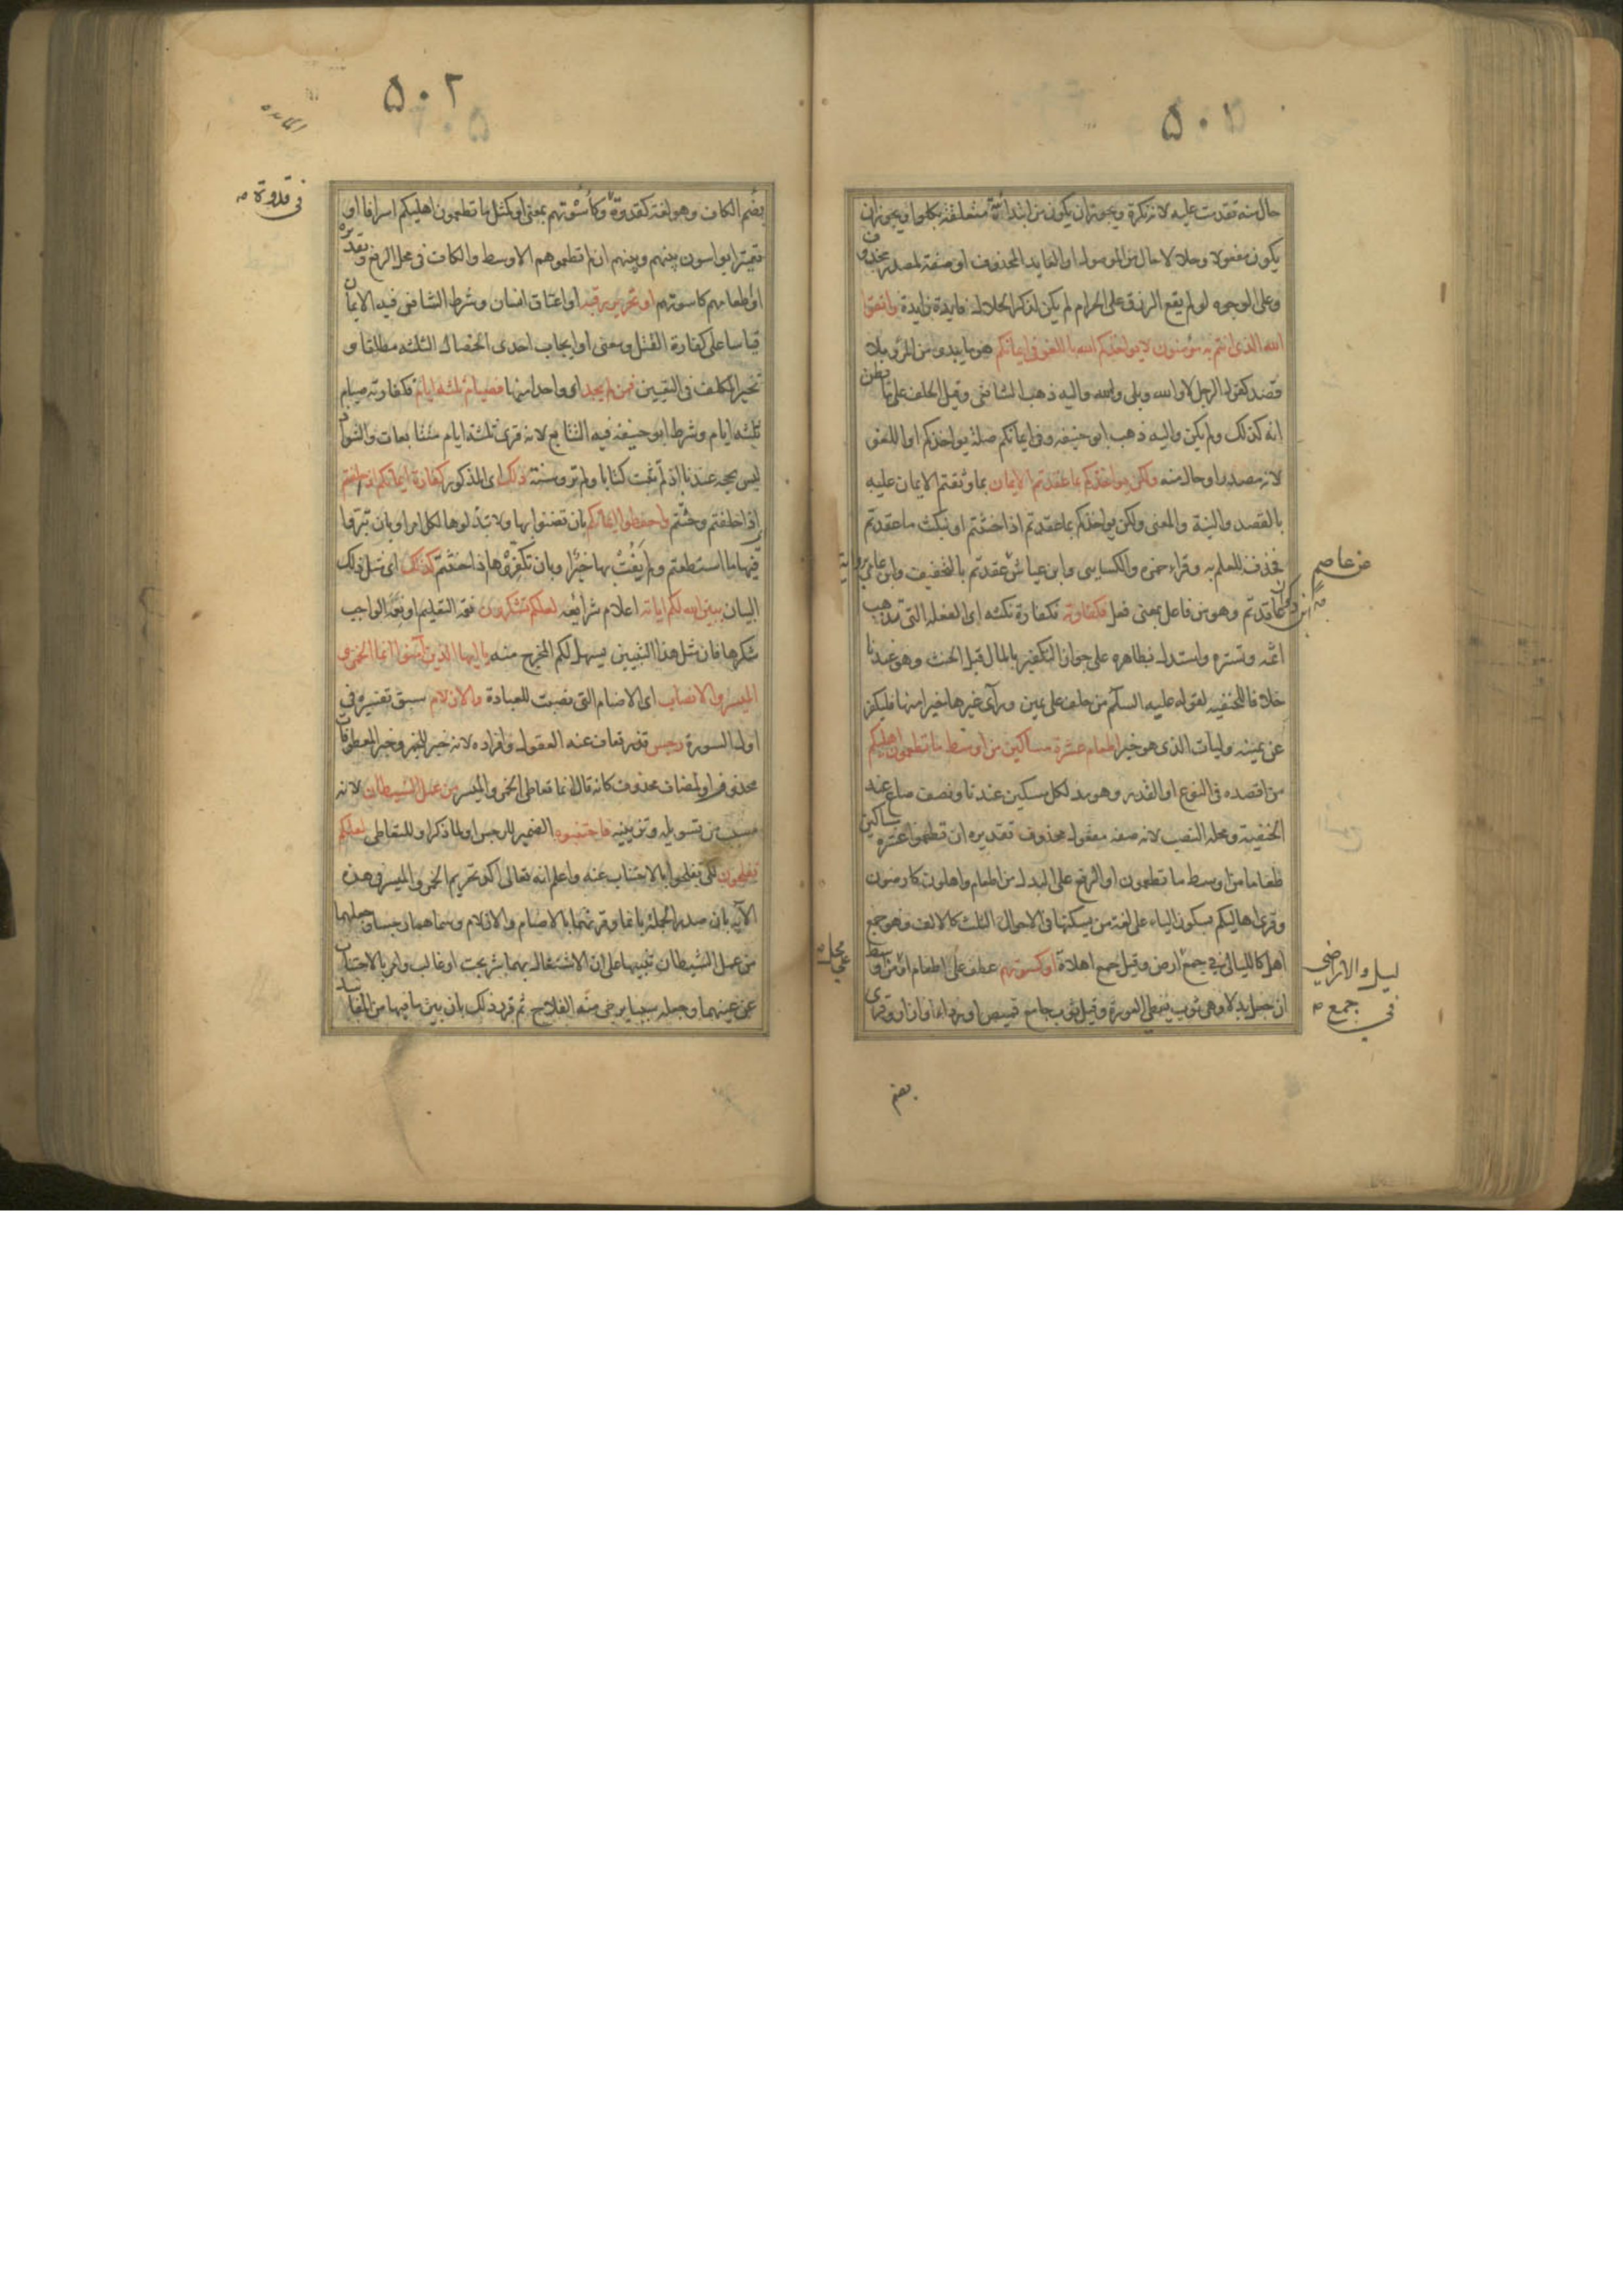 ٥٠١
حال منه تقدمت عليه لانه نكرة ويجوز ان يكون من ابتدائية متعلقة بكلوا ويجوز ان
يكون مفعولا وحلالا حال من الموصول او العايد المحذوف او صفة لمصدر محذوف
وعلى الوجوه لو لم يقع الرزق على الحرام لم يكن لذكر الحلال فايدة زايدة واتقوا
الله الذى انتم به مؤمنون لا يواخذكم الله باللغو فى ايمانكم هو ما يبدى من المرء بلا
قصد كقول الرجل لا والله وبلى والله واليه ذهب الشافعى وقيل الحلف على ما يظن
انه كذلك ولم يكن واليه ذهب ابو حنيفه وفى ايمانكم صلة يواخذكم او اللغو
لانه مصدر او حال منه ولكن يواخذكم بما عقدتم الايمان بما وثقتم الايمان عليه
بالقصد والنية والمعنى ولكن يواخذكم بما عقدتم اذا حنثتم او بنكث ما عقدتم
فحذف للعلم به وقراء حمزه والكسايى وابن عياش عقدتم بالتخفيف وابن عامر
عاقدتم وهو من فاعل بمعنى فعل فكفارته فكفارة نكثه اى الفعله التى تذهب
اثمه وتستره واستدل بظاهره على جواز التكفير بالمال قبل الحنث وهو عندنا
خلافا للحنفيه لقوله عليه السلم من حلف على يمين وراى غيرها خيرا منها فليكفر
عن يمينه وليات الذى هو خير اطعام عشرة مساكين من اوسط ما تطعمون اهليكم
من اقصده فى النوع او القدر وهو مد لكل مسكين عندنا ونصف صاع عند
الحنفية ومحله النصب لانه صفه مفعول محذوف تقديره ان تطعموا عشرة مساكين
طعاما من اوسط ما تطعمون او الرفع على البدل من اطعام واهلون كارضون
وقرى اهاليكم بسكون الياء على لغة من يسكنها فى الاحوال الثلث كالالف وهو جمع
اهل كالليالى فى جمع ارض وقيل جمع اهلاة او كسوتهم عطف على اطعام او من اوسط
ان جعل بدلا وهى ثوب يغطى العورة وقيل ثوب جامع قميص او رداء او ازار وقرى
عن عاصم
ابن ذكوان
ليل والاراضى
فى جمع
على محل
بضم
٥٠٢
المائده
فى قدوة
بضم الكاف وهو لغة كقدوة وكأسوتهم بمعنى او كمثل ما تطعمون اهليكم اسرافا او
تقتيرا تواسون بينهم وبينهم ان لم تطعموهم الاوسط والكاف فى محل الرفع وتقديره
او اطعامهم كاسوتهم او تحرير رقبة او اعتاق انسان وشرط الشافعى فيه الايمان
قياسا على كفارة القتل ومعنى او ايجاب احدى الخصال الثلثه مطلقا و
تخير المكلف فى التعيين فمن لم يجد اى واحدا منها فصيام ثلثه ايام فكفارته صيام
ثلثه ايام وشرط ابو حنيفه فيه التتابع لانه قرى ثلثه ايام متتابعات والشواذ
ليس بحجه عندنا اذ لم تثبت كتابا ولم تروسنة ذلك اى المذكور كفارة ايمانكم اذا حلفتم
اذا حلفتم وحنثتم واحفظوا ايمانكم بان تضنوا بها ولا تبذلوها لكل امر او بان تبروا
فيها ما استطعتم ولم يفت بها خير او بان تكفروها اذا حنثتم كذلك اى مثل ذلك
البيان يبين الله لكم اياته اعلام شرايعه لعلكم تشكرون نعمه التعليم او نعمه الواجب
شكرها فان مثل هذا التبيين يسهل لكم المخرج منه يا ايها الذين آمنوا انما الخمر و
الميسر والانصاب اى الاصنام التى نصبت للعبادة والازلام سبق تفسيره فى
اول السورة رجس قذر تعاف عنه العقول وافراده لانه خبر للخمر وخبر المعطوفات
محذوف او لمضاف محذوف كانه قال انما تعاطى الخمر والميسر من عمل الشيطان لانه
مسبب من تسويله وتزيينه فاجتنبوه الضمير للرجس او لما ذكر او للتعاطى لعلكم
تفلحون لكى تفلحوا بالاجتناب عنه واعلم انه تعالى اكد تحريم الخمر والميسر فى هذه
الآيه بان صدر الجملة بانما وقرنهما بالاصنام والازلام وسماهما رجسا وجعلهما
من عمل الشيطان تنبيها على ان الاشتغال بهما شر بحت او غالب وامر بالاجتناب
عن عينهما وجعله سببا يرجى منه الفلاح ثم قرر ذلك بان بين ما فيها من المفاسد